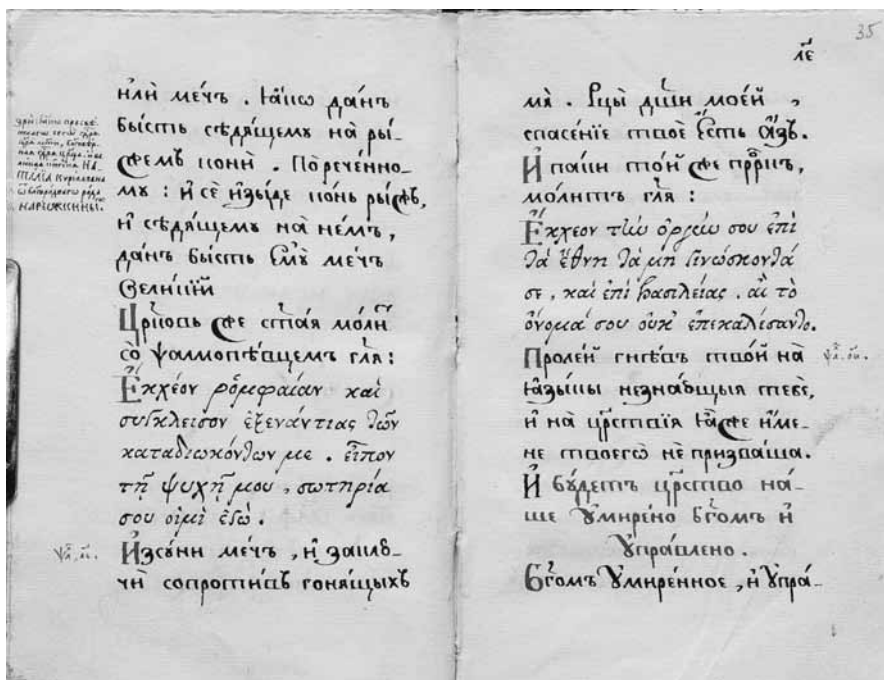 и҆лѝ ме́чъ . ꙗ҆́кѡ да́нъ
бы́сть сѣдѧ́щемꙋ на ры́-
жемъ кони̑ . По рече́нно-
мꙋ : и҆ сѐ и҆зы́де ко́нь ры́жъ,
и҆ сѣдѧ́щемꙋ на не́мъ ,
да́нъ бы́сть є҆мꙋ̀ ме́чь
вели́кїй
Цр҃ковь же ст҃а́ѧ мо́лит
со ѱалмопѣ́вцемъ гл҃ѧ :
Ἔκχεον ῥομφαίαν καὶ
σύγκλεισον ἐξενάντιας τῶν
καταδιωκόντων με . εἶπον
τῇ ψυχῇ μου , σωτηρία
σου οἰμὶ ἐδώ .
И҆зсꙋ́ни ме́чь , и҆ заклю-
чѝ сопроти́въ гонѧ́щыхъ
ѱл҃
35
л҃е
мѧ̀ . Рцы̀ дш҃и мое́й ,
спасе́нїе твоѐ є҆́сть а҆́зъ .
И҆ па́ки то́й же прⷪ҇ро́къ ,
мо́литъ гл҃ѧ :
Ἔκχεον τὴν ὀργήν σου ἐπὶ
τὰ ἔθνη τὰ μὴ γινώσκοντά
σε , καὶ ἐπὶ βασιλείας . αἳ τὸ
ὄνομά σου οὐκ ἐπεκαλέσαντο .
Проле́й гнѣ́въ тво́й на
ꙗ҆зы́ки незна́ющыѧ тебѐ ,
и҆ на црⷭ҇твїѧ ꙗ҆̀же и҆́ме-
не твоегѡ̀ не призва́ша .
ѱл҃
И҆ бꙋ́детъ црⷭ҇тво на́-
ше ᲂу҆мире́но бг҃омъ и҆
ᲂу҆пра́влено .
Бг҃омъ ᲂу҆мире́нное , и҆ ᲂу҆пра́-